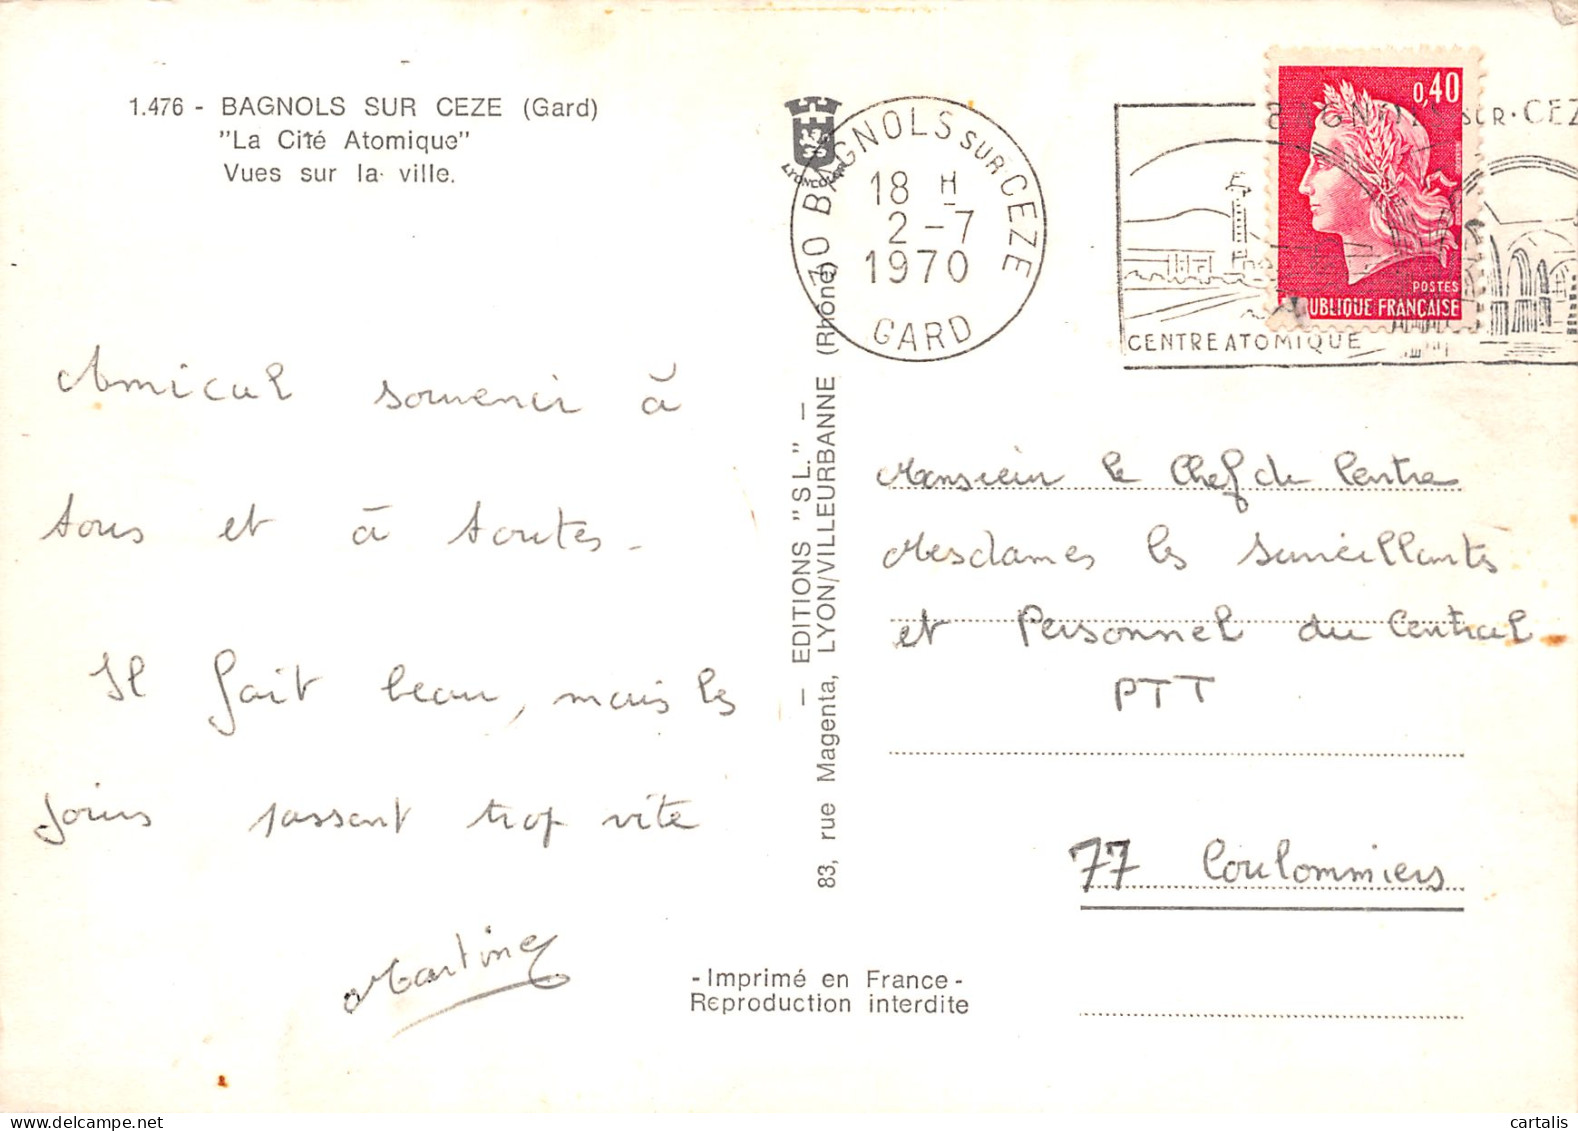 1.476 - BAGNOLS SUR CEZE (Gard)
"La Cité Atomique"
Vues sur la ville.
Amical souvenir à
tous et à toutes.
Il fait beau, mais les
jours passent trop vite
Martine
LYONCOLOR
30 BAGNOLS SUR CEZE
18 H
2-7
1970
GARD
BAGNOLS SUR·CEZ
CENTRE ATOMIQUE
0,40
POSTES
RÉPUBLIQUE FRANÇAISE
— EDITIONS "S L." —
83, rue Magenta, LYON/VILLEURBANNE (Rhône)
Monsieur le Chef de Centre
Mesdames les Surveillantes
et Personnel du Central
PTT
77 Coulommiers
- Imprimé en France -
Reproduction interdite
cartalis